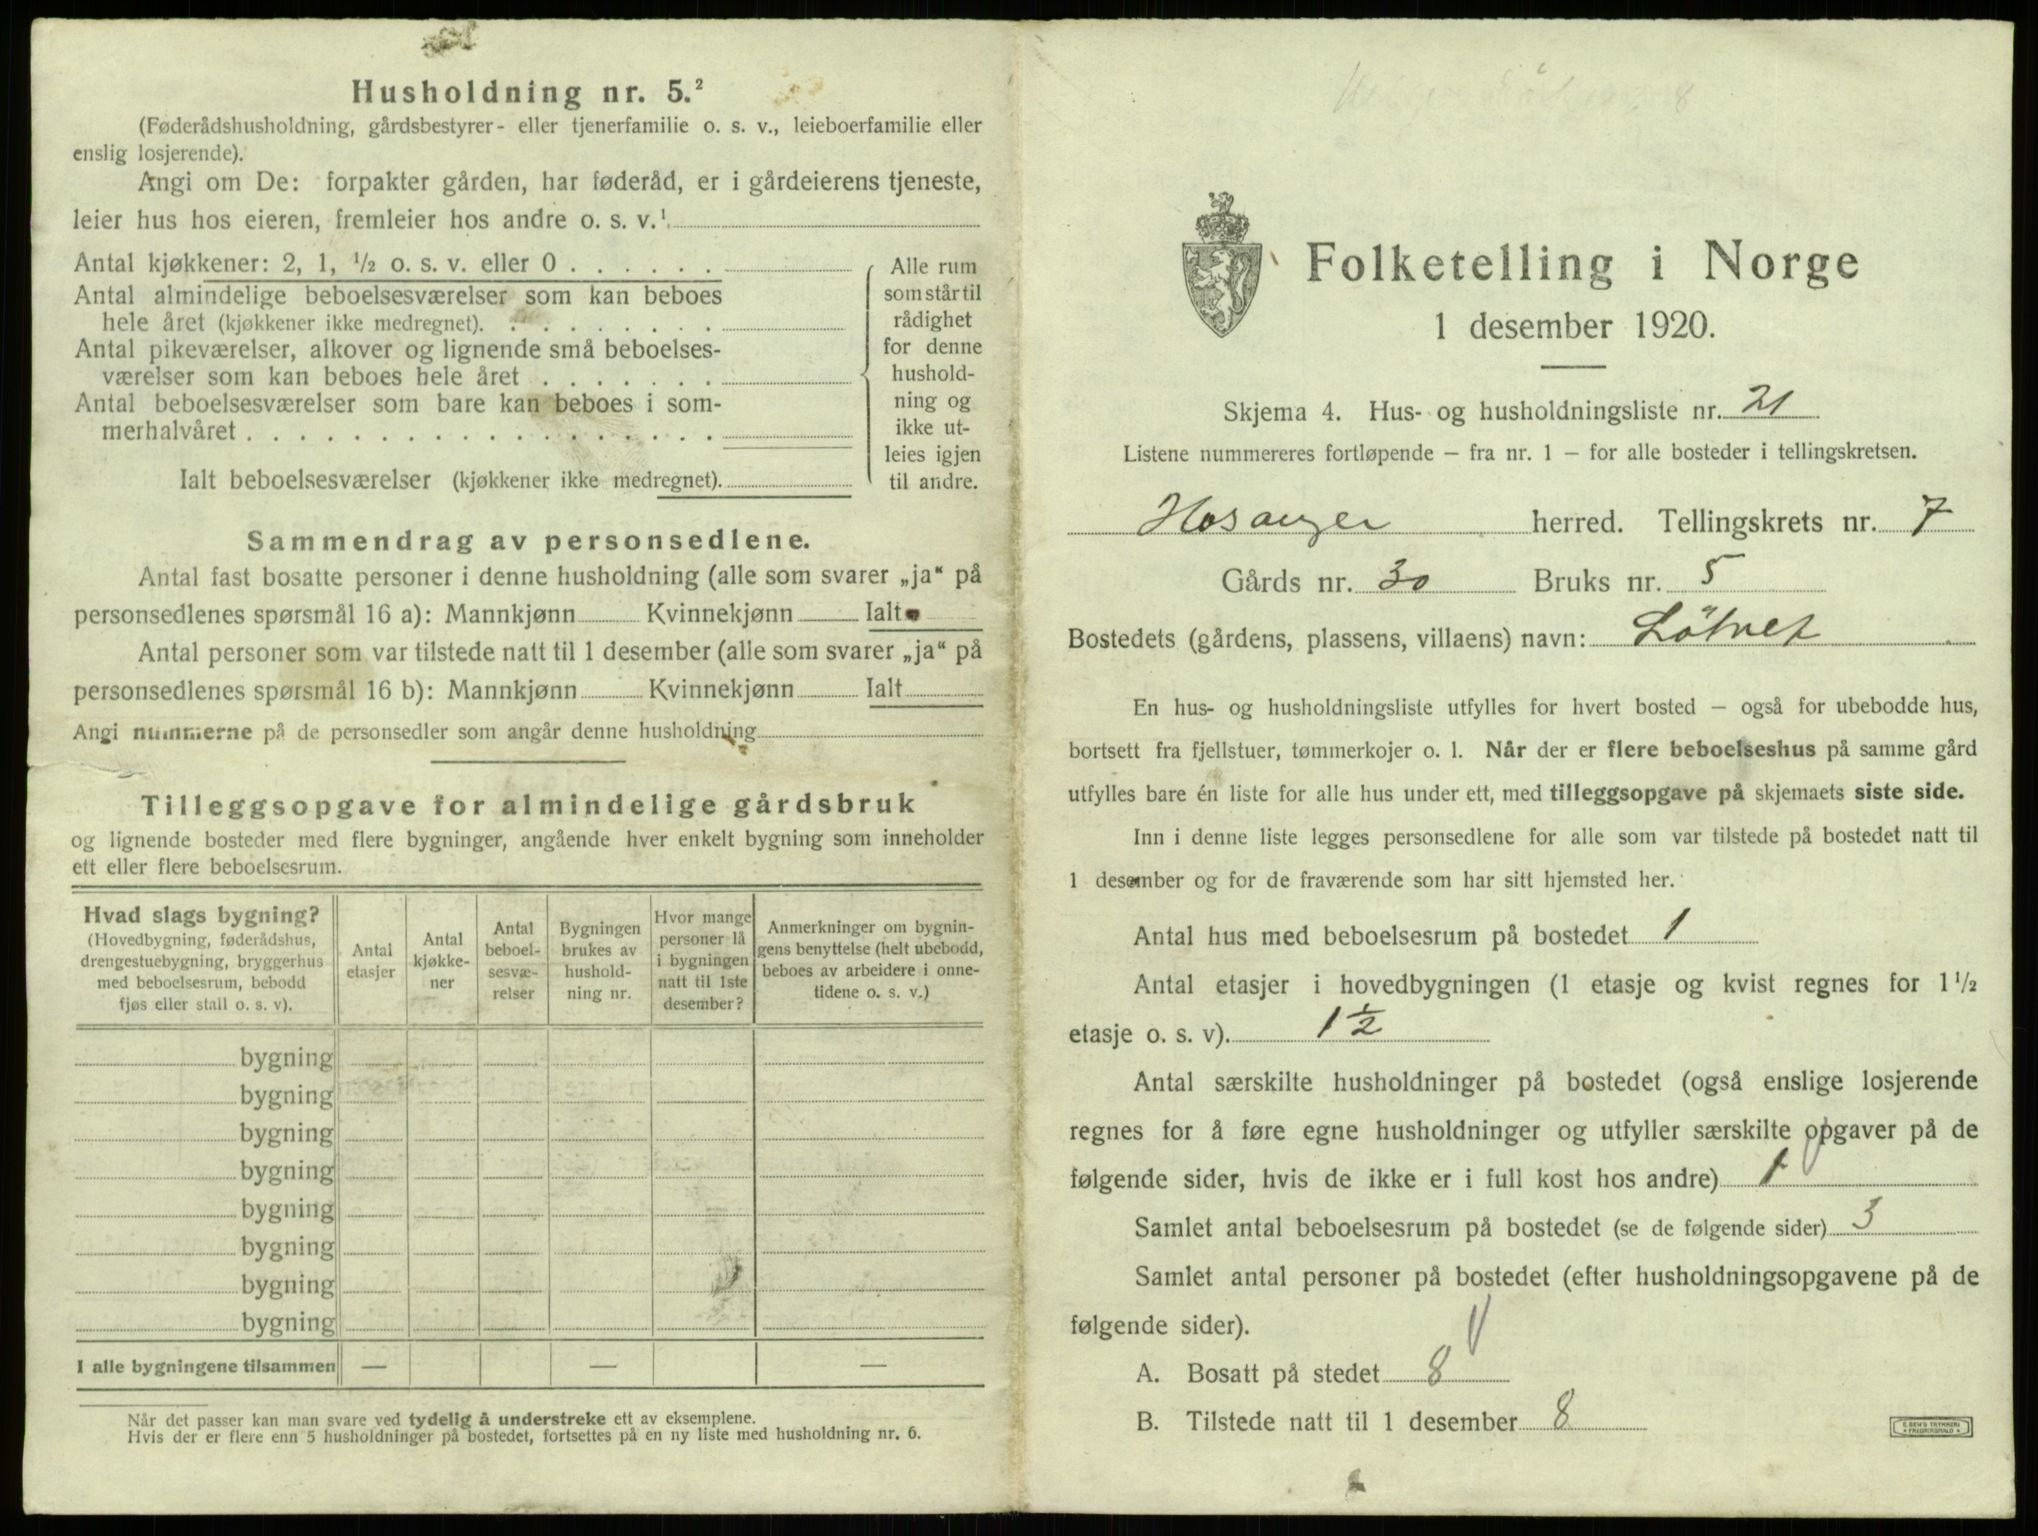 Husholdning nr. 5.²
(Føderådshusholdning, gårdsbestyrer- eller tjenerfamilie o. s. v., leieboerfamilie eller
enslig losjerende).
Angi om De: forpakter gården, har føderåd, er i gårdeierens tjeneste,
leier hus hos eieren, fremleier hos andre o. s. v.¹
Antal kjøkkener: 2, 1, ½ o. s. v. eller 0
Antal almindelige beboelsesværelser som kan beboes
hele året (kjøkkener ikke medregnet).
Antal pikeværelser, alkover og lignende små beboelses-
værelser som kan beboes hele året
Antal beboelsesværelser som bare kan beboes i som-
merhalvåret
Ialt beboelsesværelser (kjøkkener ikke medregnet).
Alle rum
som står til
rådighet
for denne
hushold-
ning og
ikke ut-
leies igjen
til andre.
Sammendrag av personsedlene.
Antal fast bosatte personer i denne husholdning (alle som svarer „ja“ på
personsedlenes spørsmål 16 a): Mannkjønn Kvinnekjønn Ialt
Antal personer som var tilstede natt til 1 desember (alle som svarer „ja“ på
personsedlenes spørsmål 16 b): Mannkjønn Kvinnekjønn Ialt
Angi nummerne på de personsedler som angår denne husholdning
Tilleggsopgave for almindelige gårdsbruk
og lignende bosteder med flere bygninger, angående hver enkelt bygning som inneholder
ett eller flere beboelsesrum.
Hvad slags bygning?
(Hovedbygning, føderådshus,
drengestuebygning, bryggerhus
med beboelsesrum, bebodd
fjøs eller stall o. s. v).
Antal
etasjer
Antal
kjøkke-
ner
Antal
beboel-
sesvæ-
relser
Bygningen
brukes av
hushold-
ning nr.
Hvor mange
personer lå
i bygningen
natt til 1ste
desember?
Anmerkninger om bygnin-
gens benyttelse (helt ubebodd,
beboes av arbeidere i onne-
tidene o. s. v.)
bygning
bygning
bygning
bygning
bygning
bygning
bygning
bygning
I alle bygningene tilsammen — — —
Når det passer kan man svare ved tydelig å understreke ett av eksemplene.
Hvis der er flere enn 5 husholdninger på bostedet, fortsettes på en ny liste med husholdning nr. 6.
Folketelling i Norge
1 desember 1920.
Skjema 4. Hus- og husholdningsliste nr. 21
Listene nummereres fortløpende – fra nr. 1 – for alle bosteder i tellingskretsen.
Hosanger herred. Tellingskrets nr. 7
Gårds nr. 30 Bruks nr. 5
Bostedets (gårdens, plassens, villaens) navn: Løtvet
En hus- og husholdningsliste utfylles for hvert bosted – også for ubebodde hus,
bortsett fra fjellstuer, tømmerkojer o. l. Når der er flere beboelseshus på samme gård
utfylles bare én liste for alle hus under ett, med tilleggsopgave på skjemaets siste side.
Inn i denne liste legges personsedlene for alle som var tilstede på bostedet natt til
1 desember og for de fraværende som har sitt hjemsted her.
Antal hus med beboelsesrum på bostedet 1
Antal etasjer i hovedbygningen (1 etasje og kvist regnes for 1½
etasje o. s. v). 1½
Antal særskilte husholdninger på bostedet (også enslige losjerende
regnes for å føre egne husholdninger og utfyller særskilte opgaver på de
følgende sider, hvis de ikke er i full kost hos andre) 1
Samlet antal beboelsesrum på bostedet (se de følgende sider) 3
Samlet antal personer på bostedet (efter husholdningsopgavene på de
følgende sider).
A. Bosatt på stedet 8
B. Tilstede natt til 1 desember 8